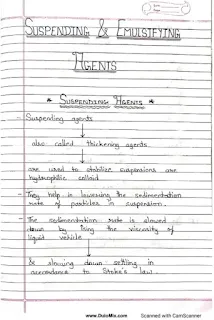 SUSPENDING & EMULSIFYING
AGENTS
* SUSPENDING AGENTS *
- Suspending agents
also called thickening agents
are used to stabilize suspensions are
hydrophilic colloid
- They help in lowering the sedimentation
rate of particles in suspension.
- The sedimentation rate is slowed
down by ↑sing the viscosity of
liquid vehicle
& slowing down settling in
accordance to Stoke's law.
www.DuloMix.com Scanned with CamScanner